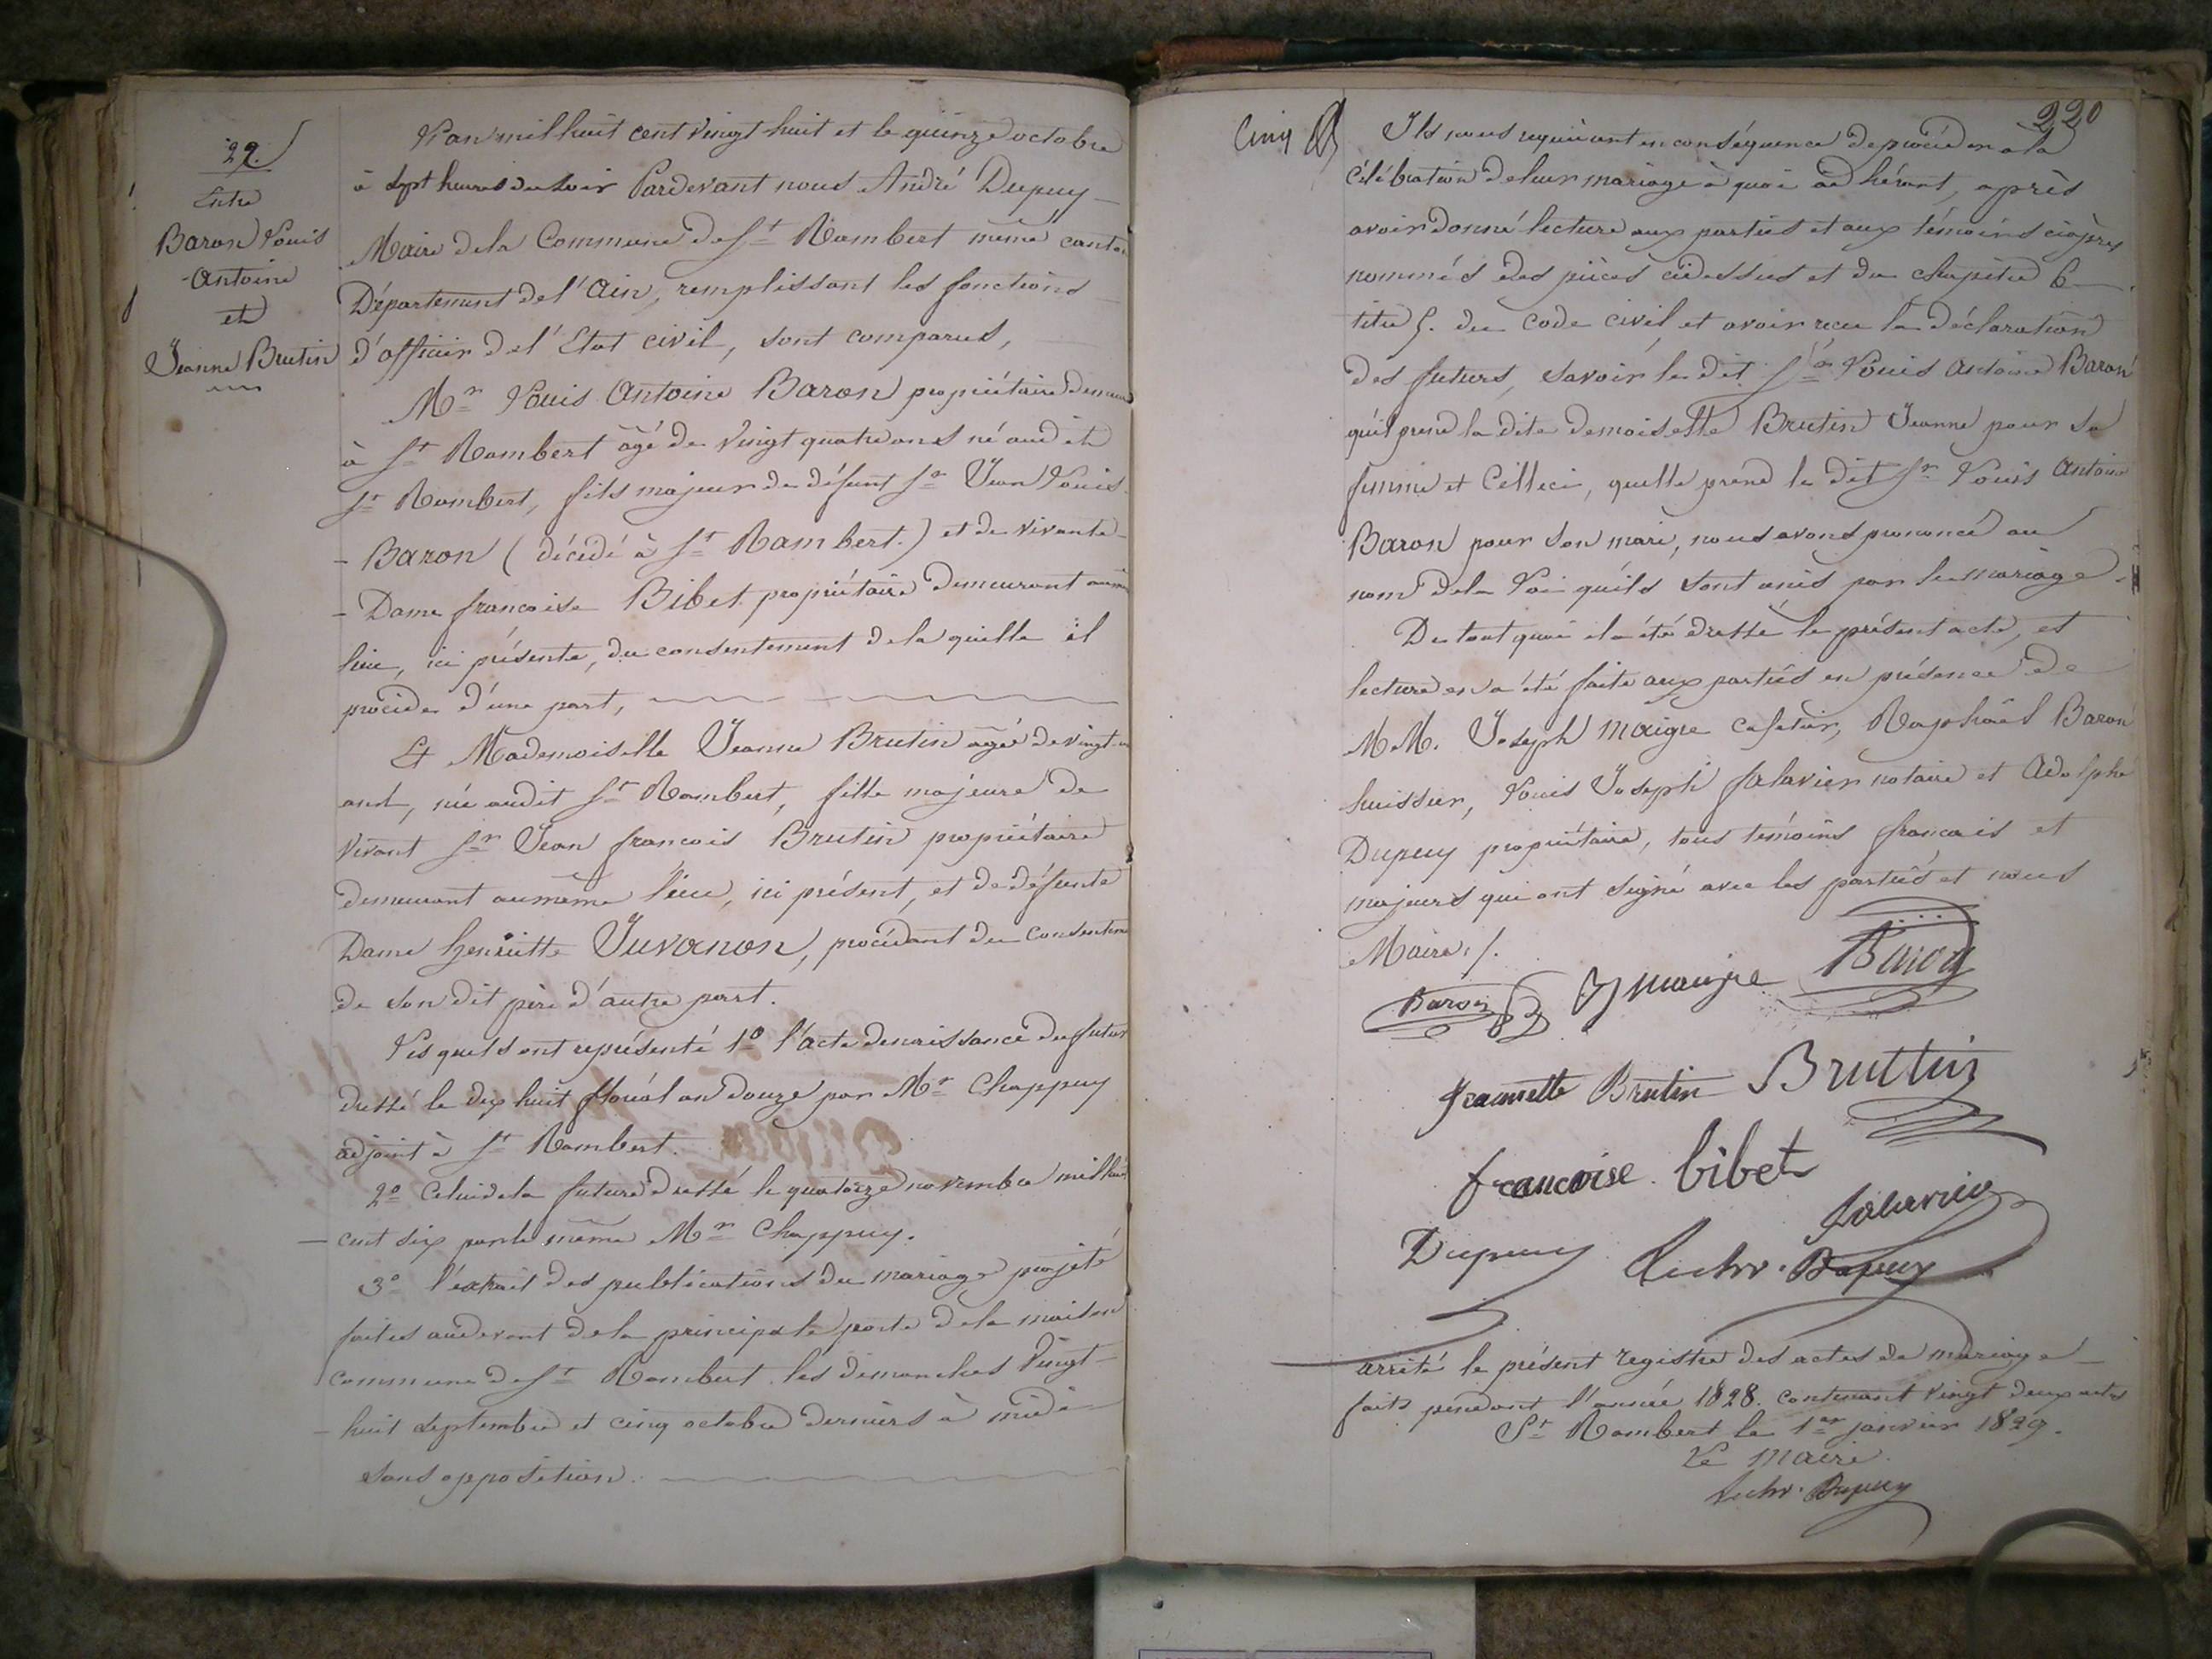 22.
Entre
Baron Louis
-Antoine
et
Jeanne Brutin
L'an mil huit cent vingt huit et le quinze octobre
à sept heures du soir Pardevant nous André Dupuy
Maire de la Commune de St Rambert même canton
Département de l'Ain, remplissant les fonctions
d'officier de l'Etat civil, sont comparus,
Mr Louis Antoine Baron propriétaire demeurt
à St Rambert âgé de vingt quatre ans né audit
St Rambert, fils majeur de défunt Sr Jean Louis
- Baron (décédé à St Rambert.) et de vivante
- Dame françoise Bibet propriétaire demeurant au même
lieu, ici présente, du consentement de la quelle il
procède d'une part,
Et Mademoiselle Jeanne Brutin agée de vingt-un
ans, née audit St Rambert, fille majeure de
vivant Sr Jean francois Brutin propriétaire
demeurant au même lieu, ici présent, et de défunte
Dame henriette Juvanon, procédant du consentem
de son dit père d'autre part.
Les quels ont représenté 1o l'acte de naissance du futur
dressé le dix huit floréal an douze par Mr Chappuy
adjoint à St Rambert.
2o Celui de la future dressé le quatorze novembre mil huit
cent six par le même Mr Chappuy.
3o l'extrait des publications du mariage projeté
faites au devant de la principale porte de la maison
commune de St Rambert les dimanches vingt-
huit septembre et cinq octobre derniers à midi
sans opposition.
Cinq
220
Ils nous requièrent en conséquence de procéder a la
Célébration de leur mariage à quoi adhérant, après
avoir donné lecture aux parties et aux témoins ciaprès
nommés des pièces cidessus et du chapitre 6
titre 5. du Code civil, et avoir reçu la déclaration
des futurs, savoir le dit Sr Louis Antoine Baron
qu'il prend la dite demoiselle Brutin Jeanne pour sa
femme et Celleci, quelle prend le dit Sr Louis Antoine
Baron pour son mari, nous avons prononcé au
nom de la Loi qu'ils sont unis par le mariage.
De tout quoi il a été dressé le présent acte, et
lecture en a été faite aux parties en présence de
M.M. Joseph Maigre cafetier, Raphaël Baron
huissier, Louis Joseph falavier notaire et Adolphe
Dupuy propriétaire, tous témoins francais et
majeurs qui ont signé avec les parties et nous
Maire./.
Baron J maigre Baron
Jeannette Brutin Bruttin
francoise bibet
falavier
Dupuy Dupuy
arrêté le présent registre des actes de mariage
faits pendant l'année 1828. contenant vingt deux actes
St Rambert le 1er janvier 1829.
Le Maire
Dupuy